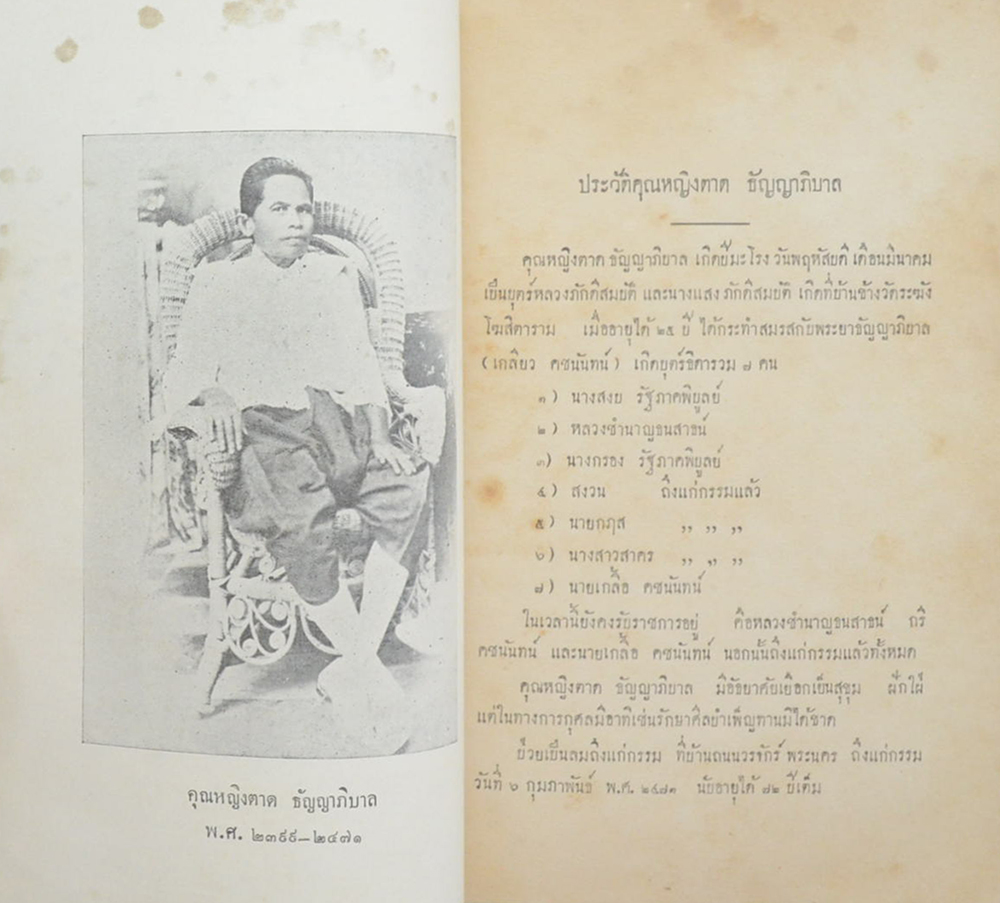 คุณหญิงตาด ธัญญาภิบาล
พ.ศ. ๒๓๙๙—๒๔๗๑
ประวัติคุณหญิงตาด ธัญญาภิบาล
คุณหญิงตาด ธัญญาภิบาล เกิดปีมะโรง วันพฤหัสบดี เดือนมีนาคม
เป็นบุตร์หลวงภักดีสมบัติ และนางแสง ภักดีสมบัติ เกิดที่บ้านข้างวัดระฆัง
โฆสิตาราม เมื่ออายุได้ ๒๕ ปี ได้กระทำสมรสกับพระยาธัญญาภิบาล
(เกลี่ยว คชนันทน์) เกิดบุตร์ธิดารวม ๗ คน
๑) นางสงบ รัฐภาคพิบูลย์
๒) หลวงชำนาญธนสาธน์
๓) นางกรอง รัฐภาคพิบูลย์
๔) สงวน ถึงแก่กรรมแล้ว
๕) นายกฦส ,, ,, ,,
๖) นางสาวสาคร ,, ,, ,,
๗) นายเกลื้อ คชนันทน์
ในเวลานี้ยังคงรับราชการอยู่ คือหลวงชำนาญธนสาธน์ กรี
คชนันทน์ และนายเกลื้อ คชนันทน์ นอกนั้นถึงแก่กรรมแล้วทั้งหมด
คุณหญิงตาด ธัญญาภิบาล มีอัธยาศัยเยือกเย็นสุขุม ฝักใฝ่
แต่ในทางการกุศลมีอาทิเช่นรักษาศีลบำเพ็ญทานมิได้ขาด
ป่วยเป็นลมถึงแก่กรรม ที่บ้านถนนวรจักร์ พระนคร ถึงแก่กรรม
วันที่ ๖ กุมภาพันธ์ พ.ศ. ๒๔๗๑ นับอายุได้ ๗๒ ปีเต็ม